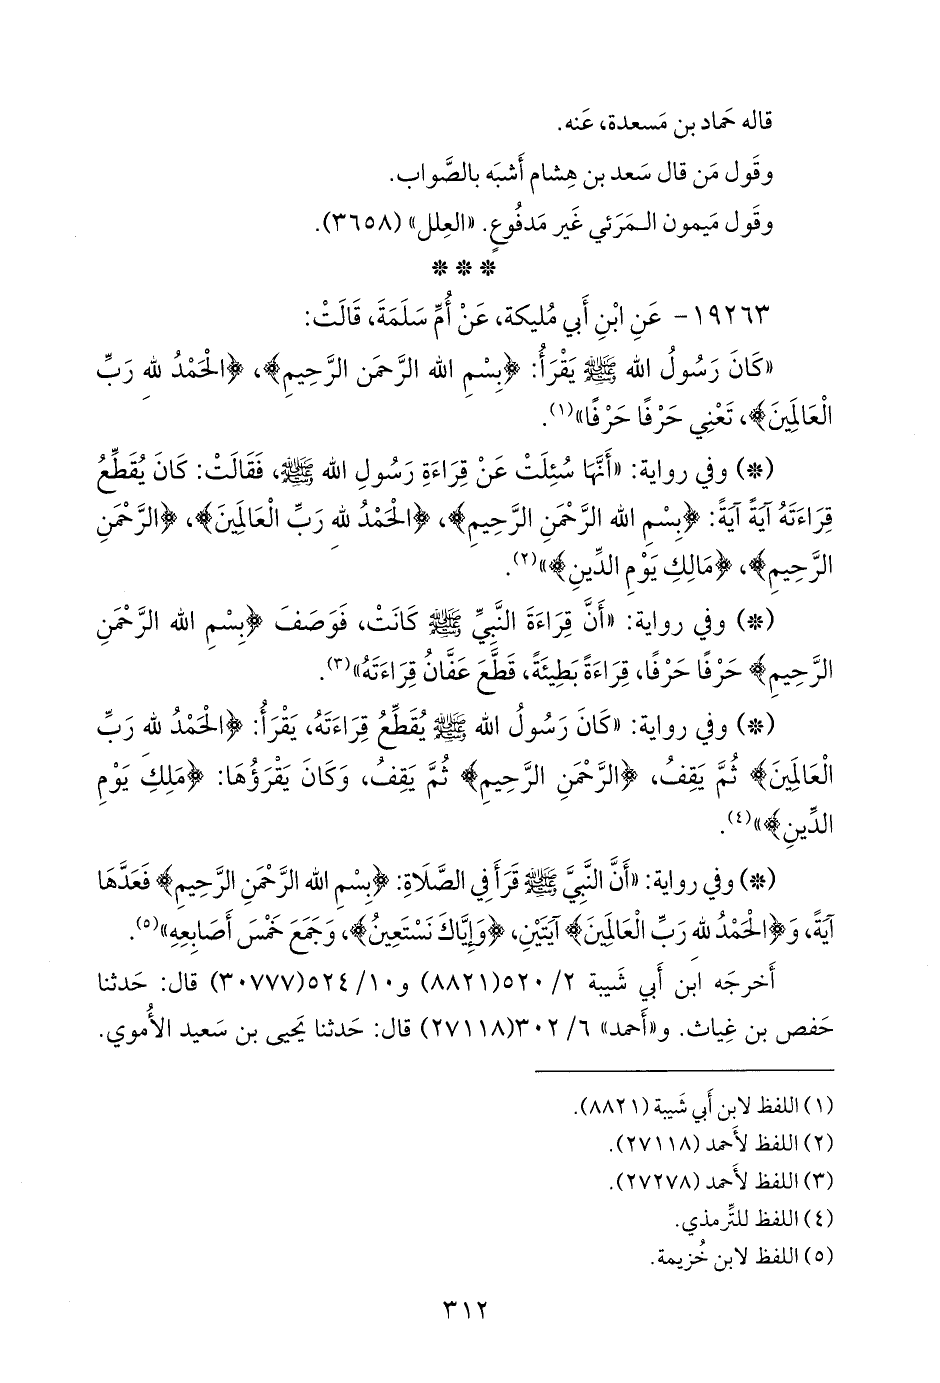 قاله حَماد بن مَسعدة، عَنه.
وقَول مَن قال سَعد بن هِشام أَشبَه بالصَّواب.
وقَول مَيمون الـمَرَئي غَير مَدفُوعٍ. «العِلل» (٣٦٥٨).
* * *
١٩٢٦٣- عَنِ ابْنِ أَبي مُليكة، عَنْ أُمِّ سَلَمَةَ، قَالَتْ:
«كَانَ رَسُولُ الله ﷺ يَقْرَأُ: ﴿بِسْمِ الله الرَّحمَن الرَّحِيمِ﴾، ﴿الْحَمْدُ لله رَبِّ
الْعَالَمِينَ﴾، تَعْنِي حَرْفًا حَرْفًا»(١).
(*) وفي رواية: «أَنَّهَا سُئِلَتْ عَنْ قِرَاءَةِ رَسُولِ الله ﷺ، فَقَالَتْ: كَانَ يُقَطِّعُ
قِرَاءَتَهُ آيَةً آيَةً: ﴿بِسْمِ الله الرَّحْمَنِ الرَّحِيمِ﴾، ﴿الْحَمْدُ لله رَبِّ الْعَالَمِينَ﴾، ﴿الرَّحْمَنِ
الرَّحِيمِ﴾، ﴿مَالِكِ يَوْمِ الدِّينِ﴾»(٢).
(*) وفي رواية: «أَنَّ قِرَاءَةَ النَّبِيِّ ﷺ كَانَتْ، فَوَصَفَ ﴿بِسْمِ الله الرَّحْمَنِ
الرَّحِيمِ﴾ حَرْفًا حَرْفًا، قِرَاءَةً بَطِيئَةً، قَطَّعَ عَفَّانُ قِرَاءَتَهُ»(٣).
(*) وفي رواية: «كَانَ رَسُولُ الله ﷺ يُقَطِّعُ قِرَاءَتَهُ، يَقْرَأُ: ﴿الْحَمْدُ لله رَبِّ
الْعَالَمِينَ﴾ ثُمَّ يَقِفُ، ﴿الرَّحْمَنِ الرَّحِيمِ﴾ ثُمَّ يَقِفُ، وَكَانَ يَقْرَؤُهَا: ﴿مَلِكِ يَوْمِ
الدِّينِ﴾»(٤).
(*) وفي رواية: «أَنَّ النَّبِيَّ ﷺ قَرَأَ فِي الصَّلَاةِ: ﴿بِسْمِ الله الرَّحْمَنِ الرَّحِيمِ﴾ فَعَدَّهَا
آيَةً، وَ﴿الْحَمْدُ لله رَبِّ الْعَالَمِينَ﴾ آيَتَيْنِ، ﴿وَإِيَّاكَ نَسْتَعِينُ﴾، وَجَمَعَ خَمْسَ أَصَابِعِهِ»(٥).
أَخرجَه ابن أَبي شَيبة ٢/ ٥٢٠(٨٨٢١) و١٠/ ٥٢٤(٣٠٧٧٧) قال: حَدثنا
حَفص بن غِياث. و«أَحمد» ٦/ ٣٠٢(٢٧١١٨) قال: حَدثنا يَحيى بن سَعيد الأُموي.
(١) اللفظ لابن أَبي شَيبة (٨٨٢١).
(٢) اللفظ لأَحمد (٢٧١١٨).
(٣) اللفظ لأَحمد (٢٧٢٧٨).
(٤) اللفظ للتِّرمذي.
(٥) اللفظ لابن خُزيمة.
٣١٢